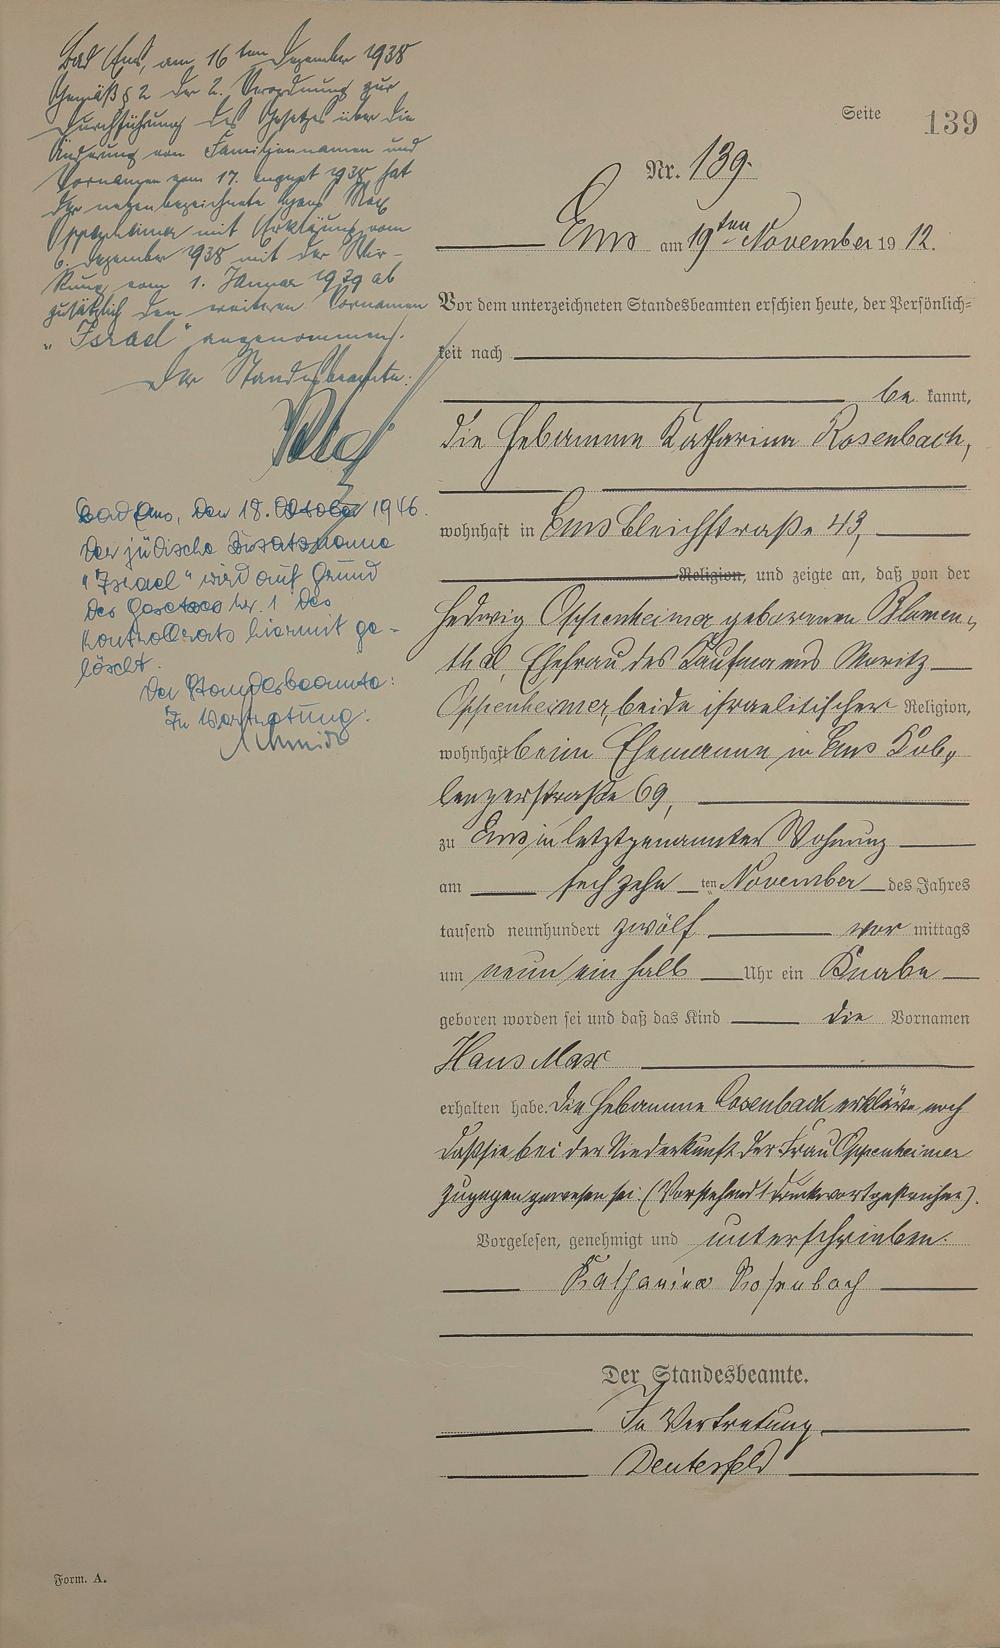 Bad Ems, am 16ten Dezember 1938
Gemäß § 2 der 2. Verordnung zur
Durchführung des Gesetzes über die
Änderung von Familiennamen und
Vornamen vom 17. August 1938 hat
der nebenbezeichnete Hans Max
Oppenheimer mit Erklärung vom
6. Dezember 1938 mit der Wir-
kung vom 1. Januar 1939 ab
zusätzlich den weiteren Vornamen
„Israel" angenommen.
Der Standesbeamte:
Bad Ems, den 18. Oktober 1946.
Der jüdische Zusatzname
"Israel" wird auf Grund
des Gesetzes Nr. 1 des
Kontrollrats hiermit ge-
löscht.
Der Standesbeamte:
In Vertretung:
Schmidt
Seite 139
Nr. 139.
Ems am 19ten November 1912.
Vor dem unterzeichneten Standesbeamten erschien heute, der Persönlich=
keit nach
be kannt,
die Hebamme Katharina Rosenbach,
wohnhaft in Ems Bleichstraße 43,
Religion, und zeigte an, daß von der
Hedwig Oppenheimer geborenen Blumen-
thal, Ehefrau des Kaufmanns Moritz
Oppenheimer, beide israelitischer Religion,
wohnhaft beim Ehemanne in Ems Kob-
lenzerstraße 69,
zu Ems in letztgenannter Wohnung
am sechzehn ten November des Jahres
tausend neunhundert zwölf vor mittags
um neun ein halb Uhr ein Knabe
geboren worden sei und daß das Kind die Vornamen
Hans Max
erhalten habe. Die Hebamme Rosenbach erkläre noch
daß sie bei der Niederkunft der Frau Oppenheimer
zugegen gewesen sei. (Vorstehend 1 Druckwort gestrichen).
Vorgelesen, genehmigt und unterschrieben.
Katharina Rosenbach
Der Standesbeamte.
In Vertretung
Deuterfeld
Form. A.